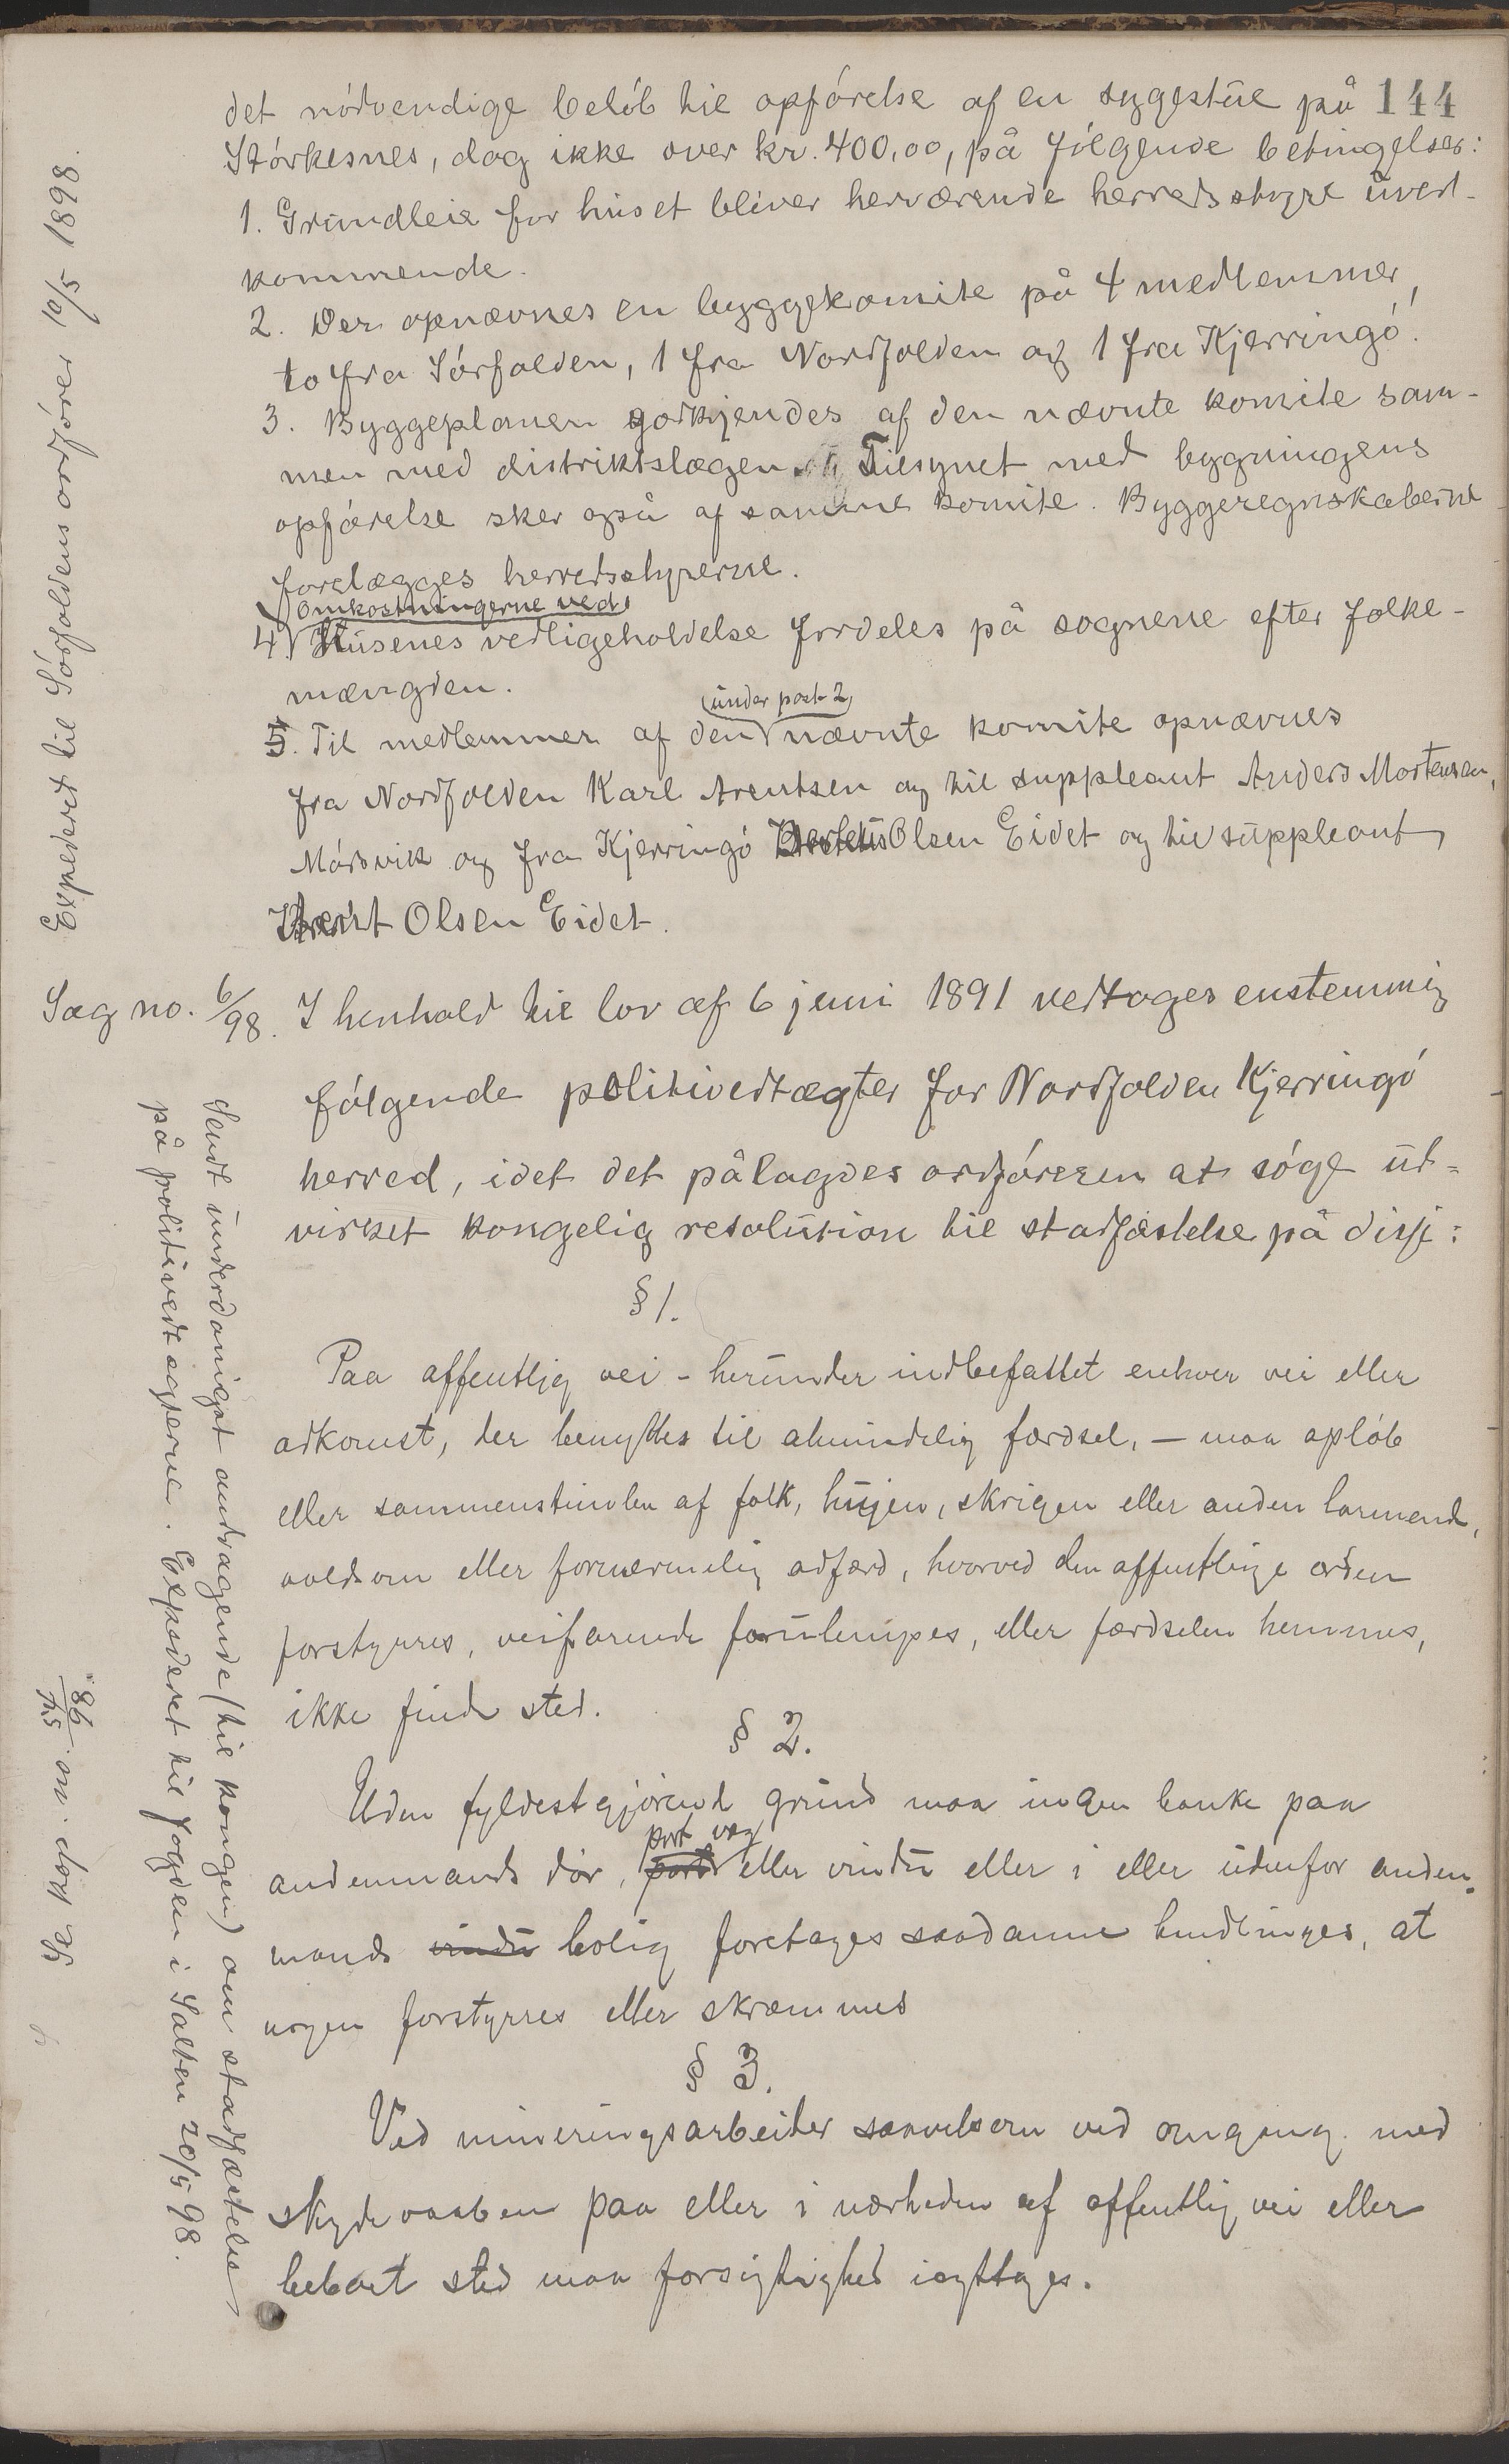 144
det nødvendige beløb til opførelse af en sygestue på
Størkesnes, dog ikke over kr. 400,00, på følgende betingelser:
1. Grundleie for huset bliver herværende herredsstyre uved-
kommende.
2. Der opnævnes en byggekomite på 4 medlemmer,
to fra Sørfolden, 1 fra Nordfolden og 1 fra Kjerringø.
3. Byggeplanen godkjendes af den nævnte komite sam-
men med distriktslægen. Tilsynet med bygningens
opførelse sker også af samme komite. Byggeregnskaberne
forelægges herredsstyrerne.
Omkostningerne ved
4. Husenes vedligeholdelse fordeles på sognene efter folke-
mængden.
under post 2
5. Til medlemmer af den nævnte komite opnævnes
fra Nordfolden Karl Arentsen og til suppleant Anders Mortensen,
Mørsvik og fra Kjerringø Olsen Eidet og til suppleant
Olsen Eidet.
Expedert til Sørfoldens ordfører 10/5 1898.
Sag no. 6/98. I henhold til lov af 6 juni 1891 vedtoges enstemmig
følgende politivedtægter for Nordfolden Kjerringø
herred, idet det pålagdes ordføreren at søge ud-
virket kongelig resolution til stadfæstelse på disse:
§ 1.
Paa offentlig vei - herunder indbefattet enhver vei eller
adkomst, der benyttes til almindelig færdsel, — maa opløb
eller sammenstimlen af folk, hujen, skrigen eller anden larmende,
voldsom eller fornærmelig adfærd, hvorved den offentlige orden
forstyrres, veifarende forulempes, eller færdselen hemmes,
ikke finde sted.
§ 2.
Uden fyldestgjørende grund maa ingen banke paa
port væg
andenmands dør, port eller vindu eller i eller udenfor anden-
mands vindu bolig foretages saadanne handlinger, at
nogen forstyrres eller skræmmes
§ 3.
Ved mineringsarbeider saavelsom ved omgang med
skydevaaben paa eller i nærheden af offentlig vei eller
beboet sted maa forsigtighed iagttages.
Sendt underdanigst andragende (til kongen) om stadfæstelse
på politivedtægterne. Expederet til fogden i Salten 20/5 98.
Se kop. no. 54/98.